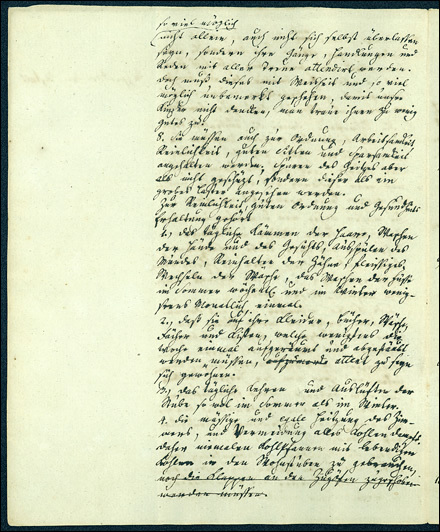 so viel möglich
nicht allein, auch nicht sich selbst überlassen
seyn, sondern ihre Gänge, Handlungen und
Reden mit aller Treue attendirt werden.
doch muß dieses mit Weisheit und so viel
möglich unbemerkt geschehen, damit unsre
Kinder nicht denken, man traue ihnen zu wenig
Gutes zu.
5. Sie müssen auch zur Ordnung, Arbeitsamkeit
Reinlichkeit, guten Sitten und Sparsamkeit
angehalten werden.
als nicht sondern dieser als ein
grobes Laster angesehen werden.
Zur Reinlichkeit, guten Ordnung und Gesundheits
Erhaltung gehört
1., das tägliche Kämmen der Haare, Waschen
der Hände und des Gesichts, Ausspülen des
Mundes, Reinhalten der Zähne, fleissiges
Wechseln der Wäsche, das Waschen der Füße
im Sommer wöchentl. und im Winter wenig-
stens Monatlich einmal.
2., daß sie auf ihre Kleider, Bücher, Wäsche,
Fächer und Kisten, welche wenigstens die
Woche einmal aufgeräumt und abgestäubt
werden müssen, alles zu seyn
sich gewöhnen.
3., das tägliche Kehren und Auslüften der
Stube so wol im Sommer als im Winter.
4. die mäßige und egale Heitzung des Zim-
mers, und Vermeidung alles Kohlendampfs
daher niemalen Kohlpfannen mit lebendigen
Kohlen in den Wohnstuben zu gebrauchen,
noch die Klappen an den zugeschoben
werden müssen.